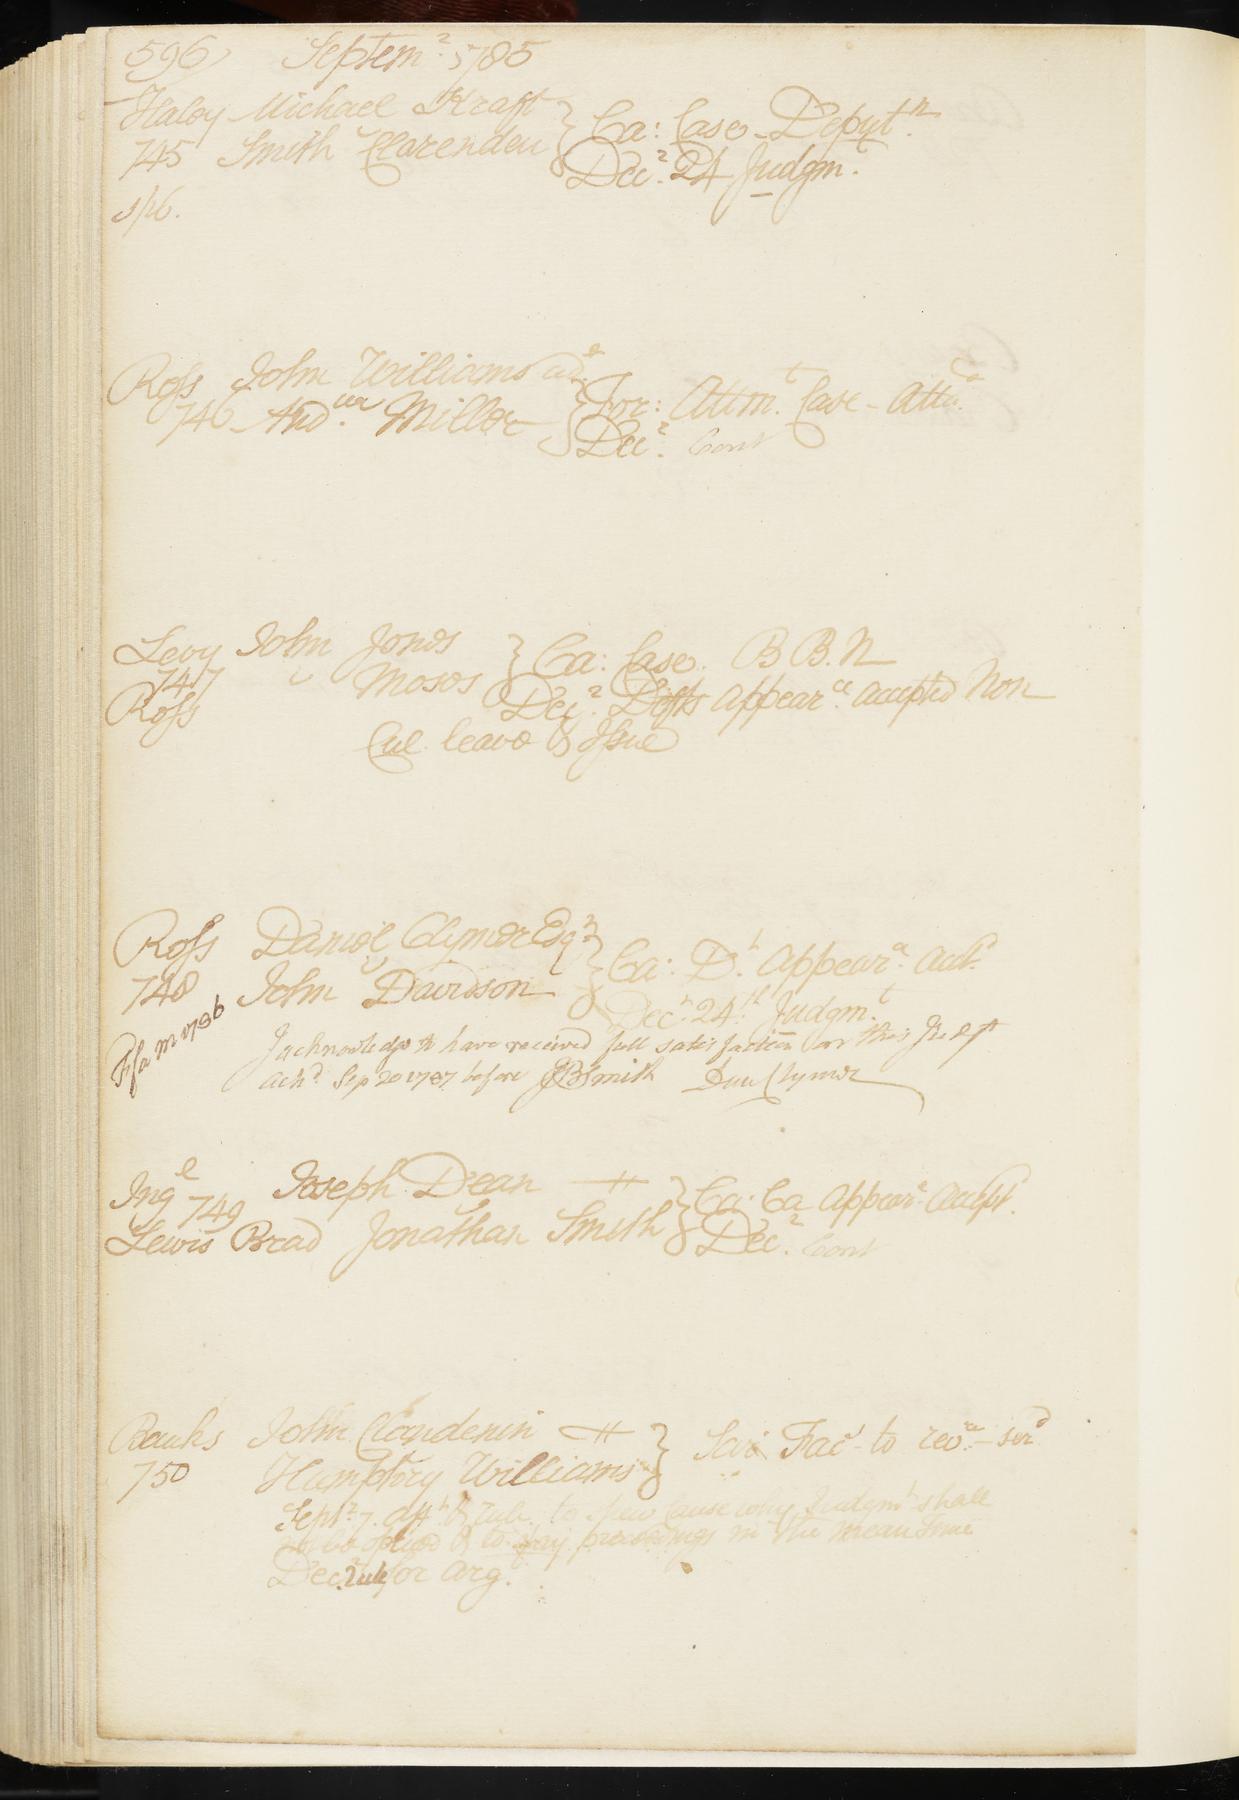 596 Septemr 1785
Haley Michael Kraft } Ca: Case. Deput.n
745 Smith Clarenden Decr. 24 Judgm.t
Ross John Williams } For: Attm.t Case - Att.d
746 And. Miller Decr. Cont
Levy John Jones } Ca: Case. B B. N
747 " Moses Decr. Defts appear.ce accepted Non
Ross
Cul. leave & Issue
Ross Daniel Clymer Esqr } Ca: D.t appear.a acct.
748 John Davidson Decr. 24.th Judgm.t
Fi fa m 1786 I acknowledge to have received full satisfaction on this Judgt
Ackd. Sep 20 1787 before JBSmith Dan Clymer
Ing.l 749 Joseph Dean # } Ca. Ca appear.e accept.
Lewis Brad Jonathan Smith Decr. Cont
Banks John Clendenin # } Sci Fac to rev. - serd
750 Humphry Williams
Septr 7. Aff.t & rule to shew cause why Judgmt shall
not be opened & to stay proceedings in the mean Time
Dec. rule for arg.